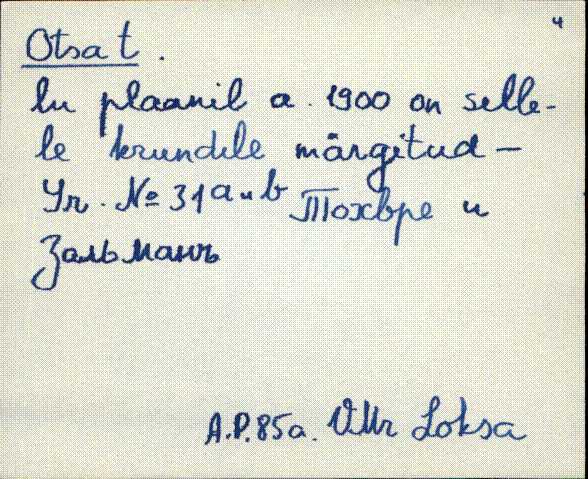 4
Otsa t.
lu plaanil a. 1900 on selle-
le krundile märgitud –
Уч. № 31 а и b Тохвре и
Зальманъ
A.P. 85a. VMr Loksa